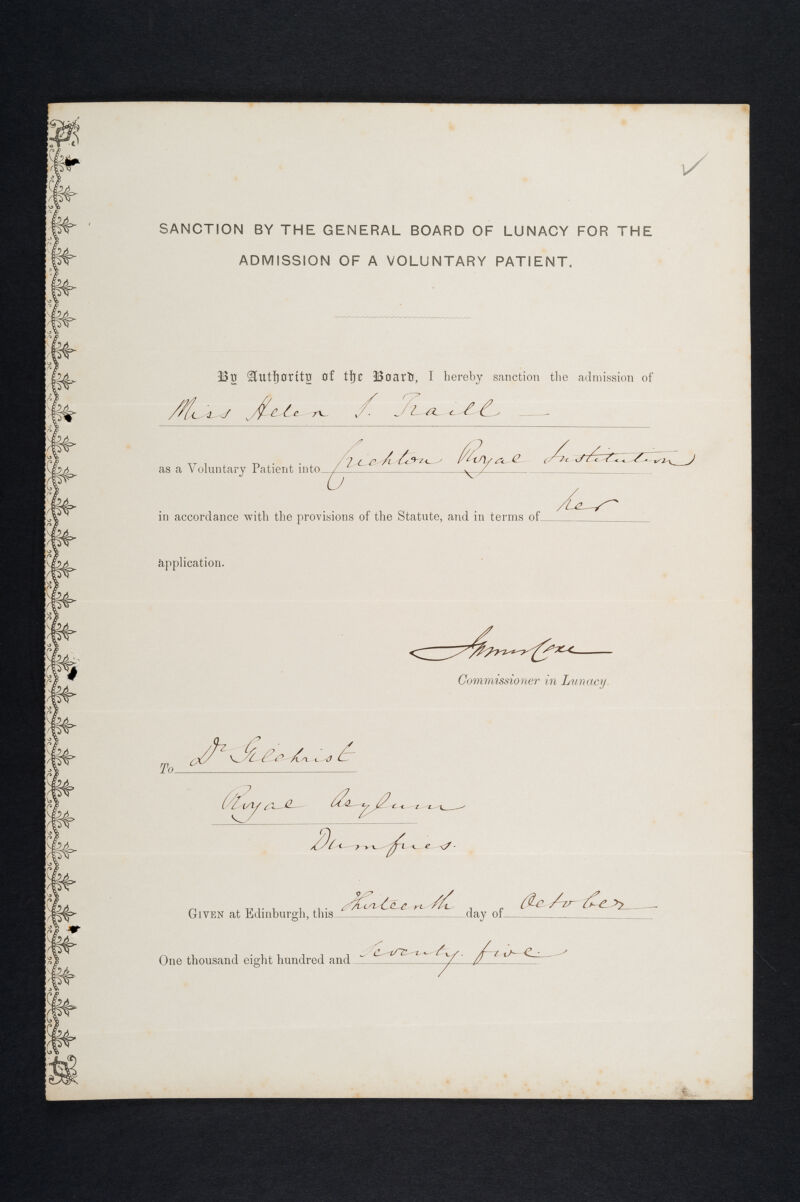 SANCTION BY THE GENERAL BOARD OF LUNACY FOR THE
ADMISSION OF A VOLUNTARY PATIENT.
By Authority of the Board, I hereby sanction the admission of
Miss Helen S. Traill —
as a Voluntary Patient into Crichton Royal Institution
in accordance with the provisions of the Statute, and in terms of her
application.
James Coxe
Commissioner in Lunacy.
To Dr Gilchrist
Royal Asylum
Dumfries.
GIVEN at Edinburgh, this Thirteenth day of October
One thousand eight hundred and seventy five.